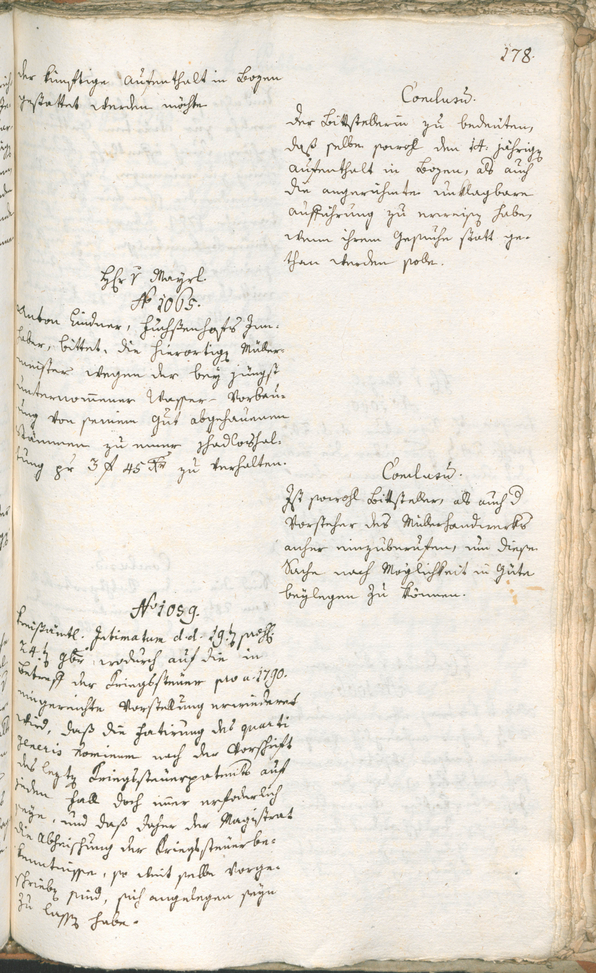 178.
der künftige Aufenthalt in Bozen
gestattet werden möchte
Conclusũ.
der Bittstellerin zu bedeuten,
daß selbe sowohl den 14. jährigen
Aufenthalt in Bozen, als auch
die angerühmte unklagbare
Aufführung zu erweisen habe,
wenn ihrem Gesuche statt ge-
than werden solle.
Mayrl
No 1065.
Anton Lindner, Inn-
haber, bittet, die hierortigen Müller-
meister wegen der bey jüngst
unternommener Wasser-Vorbau-
ung von seinem Gut abgehauenen
Stämmen zu einer Schadloshal-
tung pr 3 f 45 xr zu verhalten.
Conclusũ.
Ist sowohl Bittsteller, als auch d
Vorsteher des Müllerhandwerks
anher einzuberufen, um diese
Sache nach Möglichkeit in Güte
beylegen zu können.
No 1059.
Kreisämtl. Intimatum d.d. 19.
24. 9br, wodurch auf die in
Betreff der Kriegssteuer pro a. 1790.
eingereichte Vorstellung erwiedert
wird, daß die Fatirung des quarti
generis hominum nach der Vorschrift
des Kriegssteuerpatents auf
jeden Fall doch immer erforderlich
seye, und daß daher der Magistrat
die Abheischung der Kriegssteuerbe-
kenntnisse, so weit selbe vorge-
schrieben sind, sich angelegen seyn
zu lassen habe.